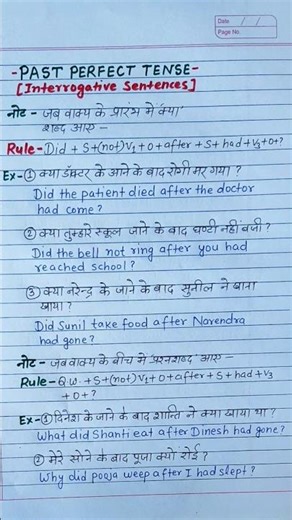 Date / /
Page No.
-PAST PERFECT TENSE-
[Interrogative Sentences]
नोट - जब वाक्य के प्रारंभ में 'क्या'
शब्द आए -
Rule- Did + S+(not)V₁ + O +after + S + had + V₃ + O+?
Ex-① क्या डॉक्टर के आने के बाद रोगी मर गया ?
Did the patient died after the doctor
had come?
② क्या तुम्हारे स्कूल जाने के बाद घण्टी नहीं बजी ?
Did the bell not ring after you had
reached school?
③ क्या नरेन्द्र के जाने के बाद सुनील ने खाना
खाया ?
Did Sunil take food after Narendra
had gone?
नोट- जब वाक्य के बीच में प्रश्नशब्द आए -
Rule- Q.w. + S +(not) V₁ + O + after + S + had + V₃
+ O + ?
Ex-① दिनेश के जाने के बाद शान्ति ने क्या खाया था ?
What did Shanti eat after Dinesh had gone?
② मेरे सोने के बाद पूजा क्यों रोई ?
Why did pooja weep after I had slept?